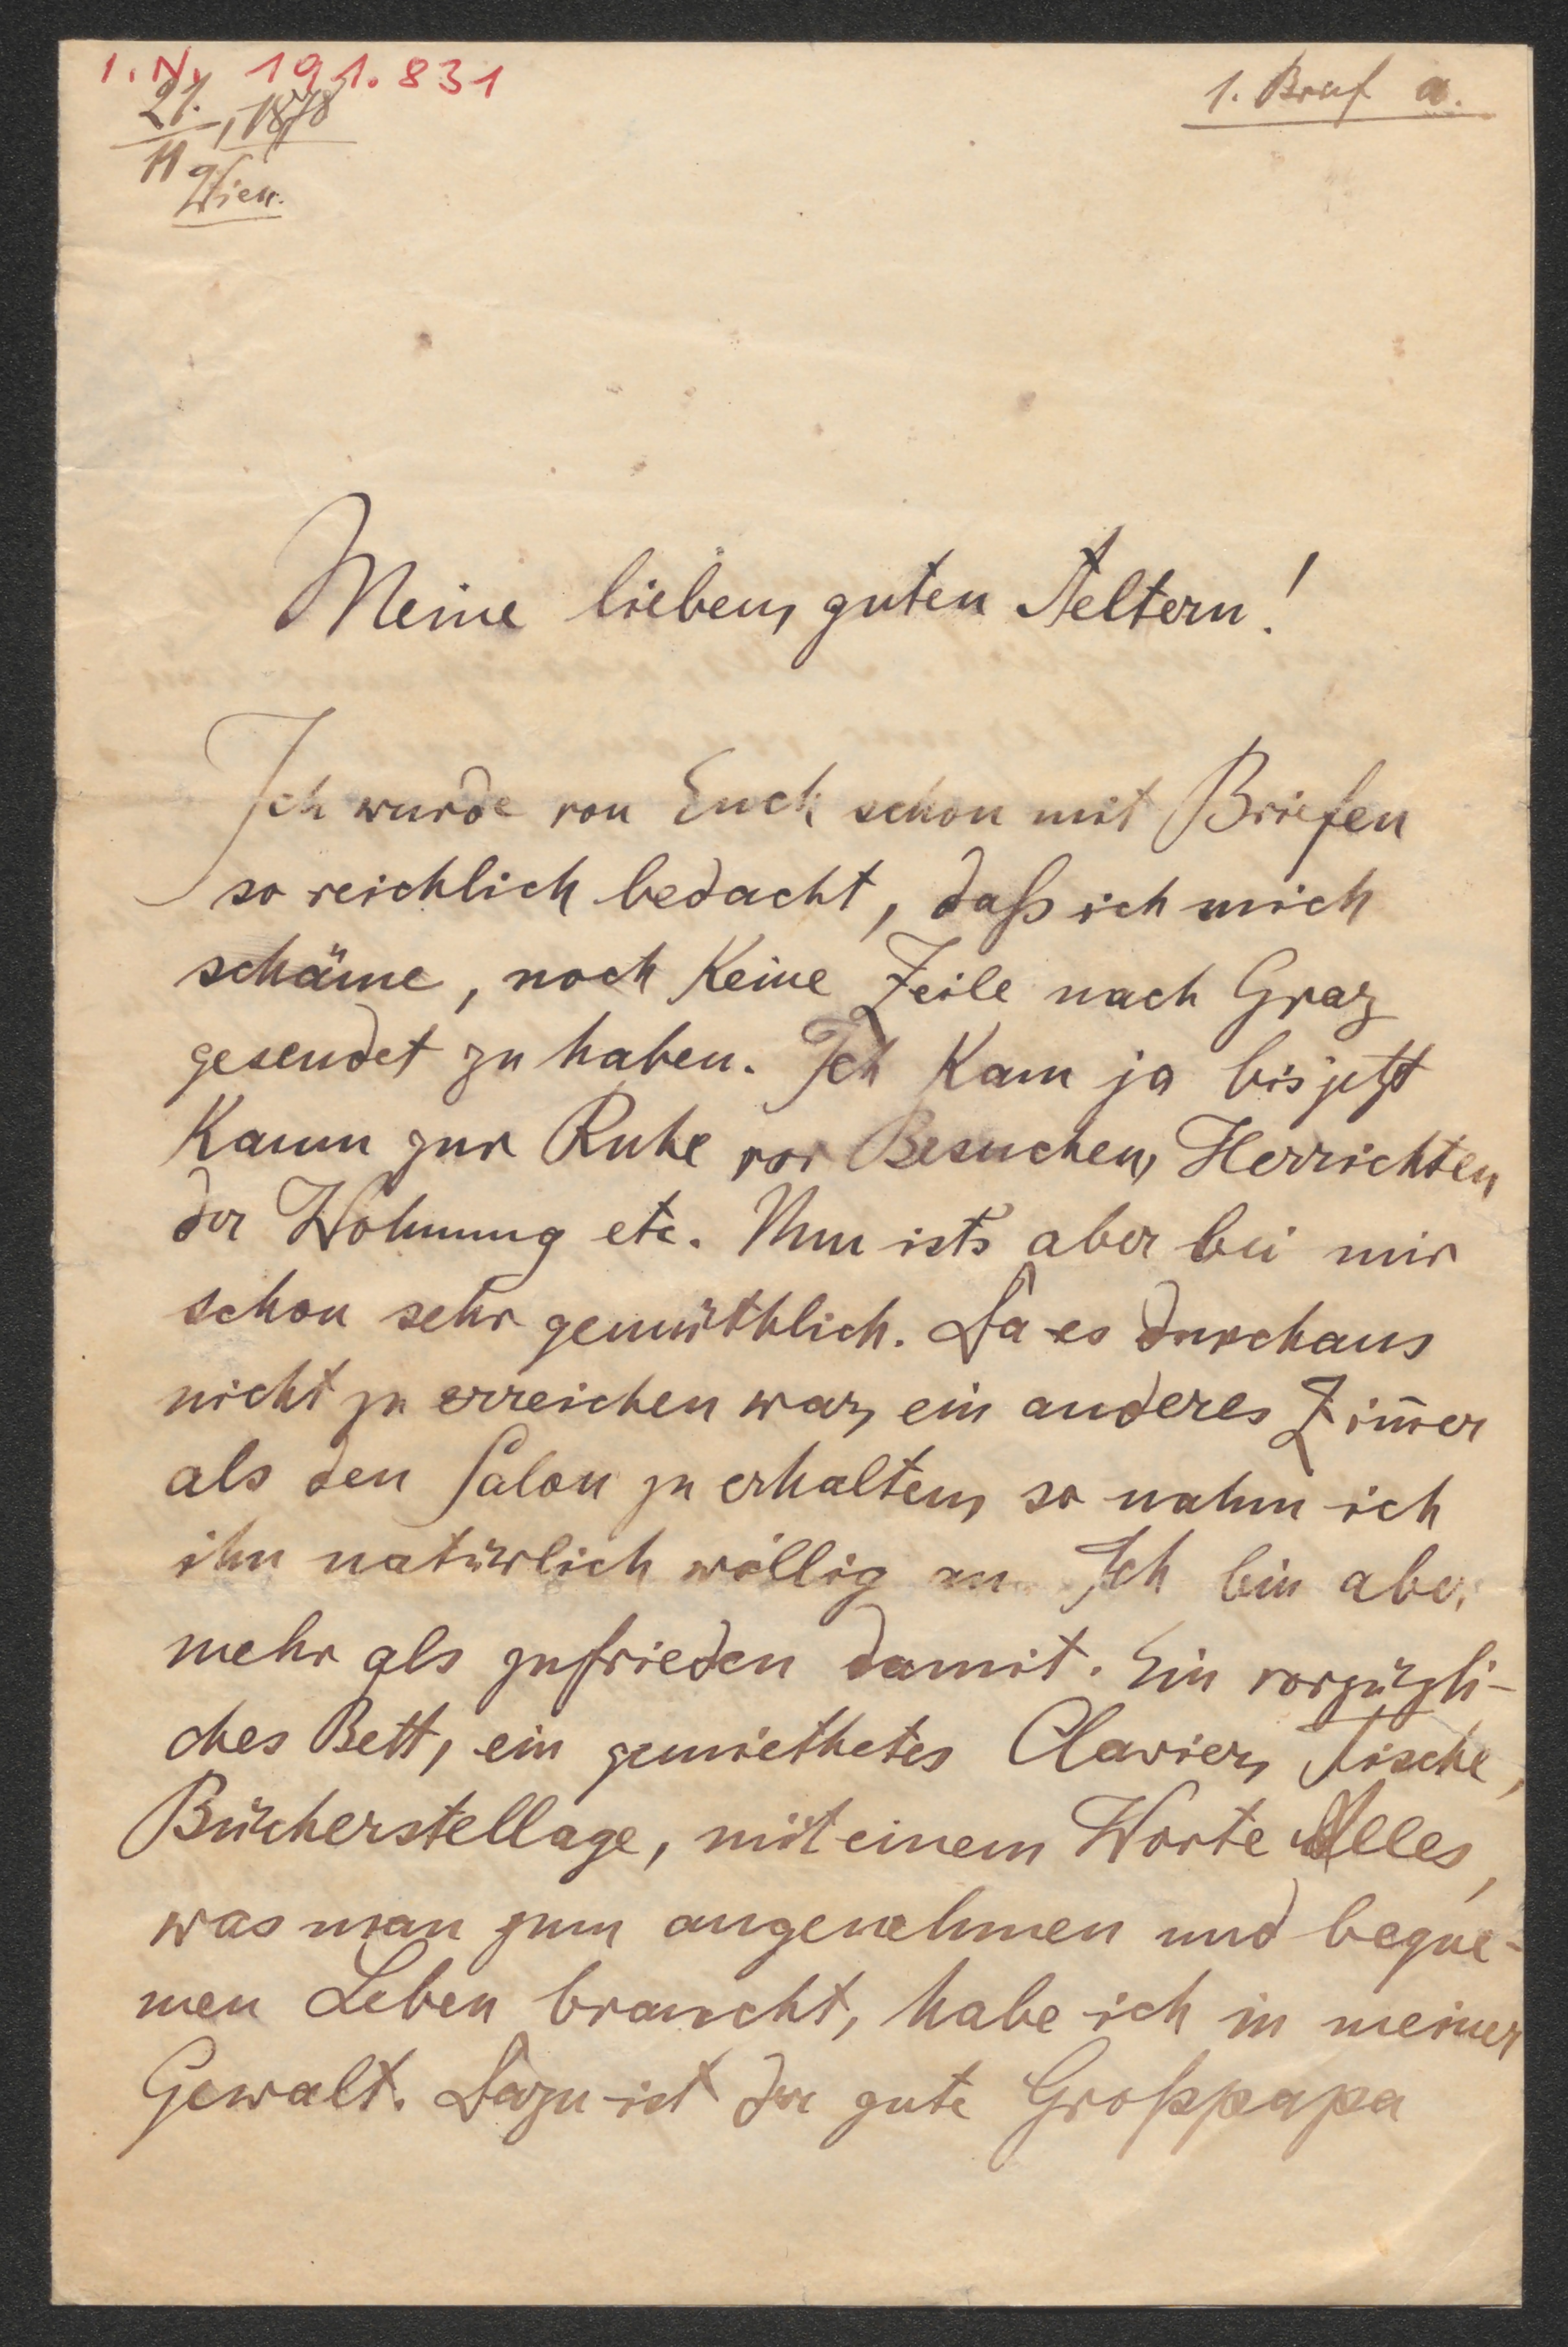 I.N. 191.831
21./11, 1878
Wien.
1. Brief a.
Meine lieben, guten Aeltern!
Ich wurde von Euch schon mit Briefen
so reichlich bedacht, daß ich mich
schäme, noch keine Zeile nach Graz
gesendet zu haben. Ich kam ja bis jetzt
kaum zur Ruhe vor Besuchen, Herrichten
der Wohnung etc. Nun ists aber bei mir
schon sehr gemüthlich. Da es durchaus
nicht zu erreichen war, ein anderes Zim̄er
als den Salon zu erhalten, so nahm ich
ihn natürlich willig an. Ich bin aber
mehr als zufrieden damit. Ein vorzügli-
ches Bett, ein gemiethetes Clavier, Tische,
Bücherstellage, mit einem Worte Alles,
was man zum angenehmen und beque-
men Leben braucht, habe ich in meiner
Gewalt. Dazu ist der gute Großpapa